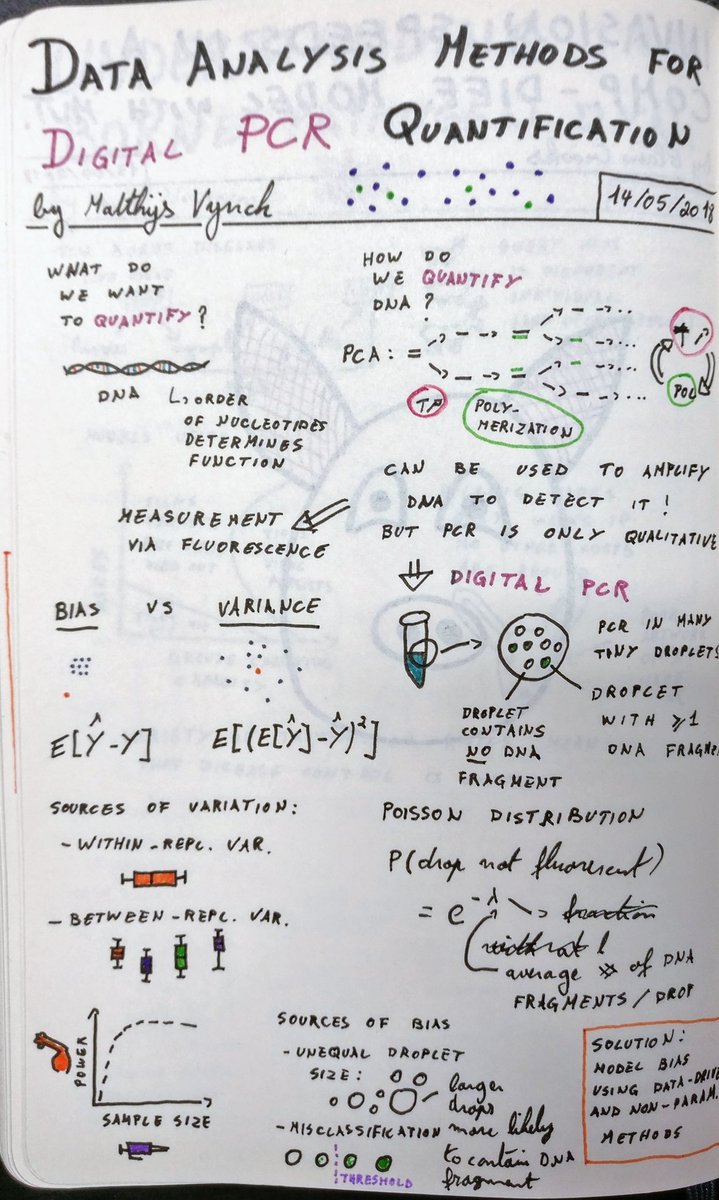 DATA ANALYSIS METHODS FOR
DIGITAL PCR QUANTIFICATION
by Matthijs Vynck
14/05/2018
WHAT DO
WE WANT
TO QUANTIFY?
DNA
ORDER
OF NUCLEOTIDES
DETERMINES
FUNCTION
HOW DO
WE QUANTIFY
DNA?
PCA:
POLY-
MERIZATION
POL
CAN BE USED TO AMPLIFY
DNA TO DETECT IT!
BUT PCR IS ONLY QUALITATIVE
MEASUREMENT
VIA FLUORESCENCE
DIGITAL PCR
PCR IN MANY
TINY DROPLETS
DROPLET
WITH ≥1
DNA FRAGME
DROPLET
CONTAINS
NO DNA
FRAGMENT
BIAS VS VARIANCE
E[Ŷ-Y] E[(E[Ŷ]-Ŷ)²]
SOURCES OF VARIATION:
- WITHIN-REPL. VAR.
- BETWEEN-REPL. VAR.
POWER
SAMPLE SIZE
POISSON DISTRIBUTION
P(drop not fluorescent)
= e^-λ → fraction
without !
average # of DNA
FRAGMENTS/DROP
SOURCES OF BIAS
- UNEQUAL DROPLET
SIZE:
larger
drops
more likely
to contain DNA
fragment
- MISCLASSIFICATION
THRESHOLD
SOLUTION:
MODEL BIAS
USING DATA-DRIVE
AND NON-PARAM.
METHODS